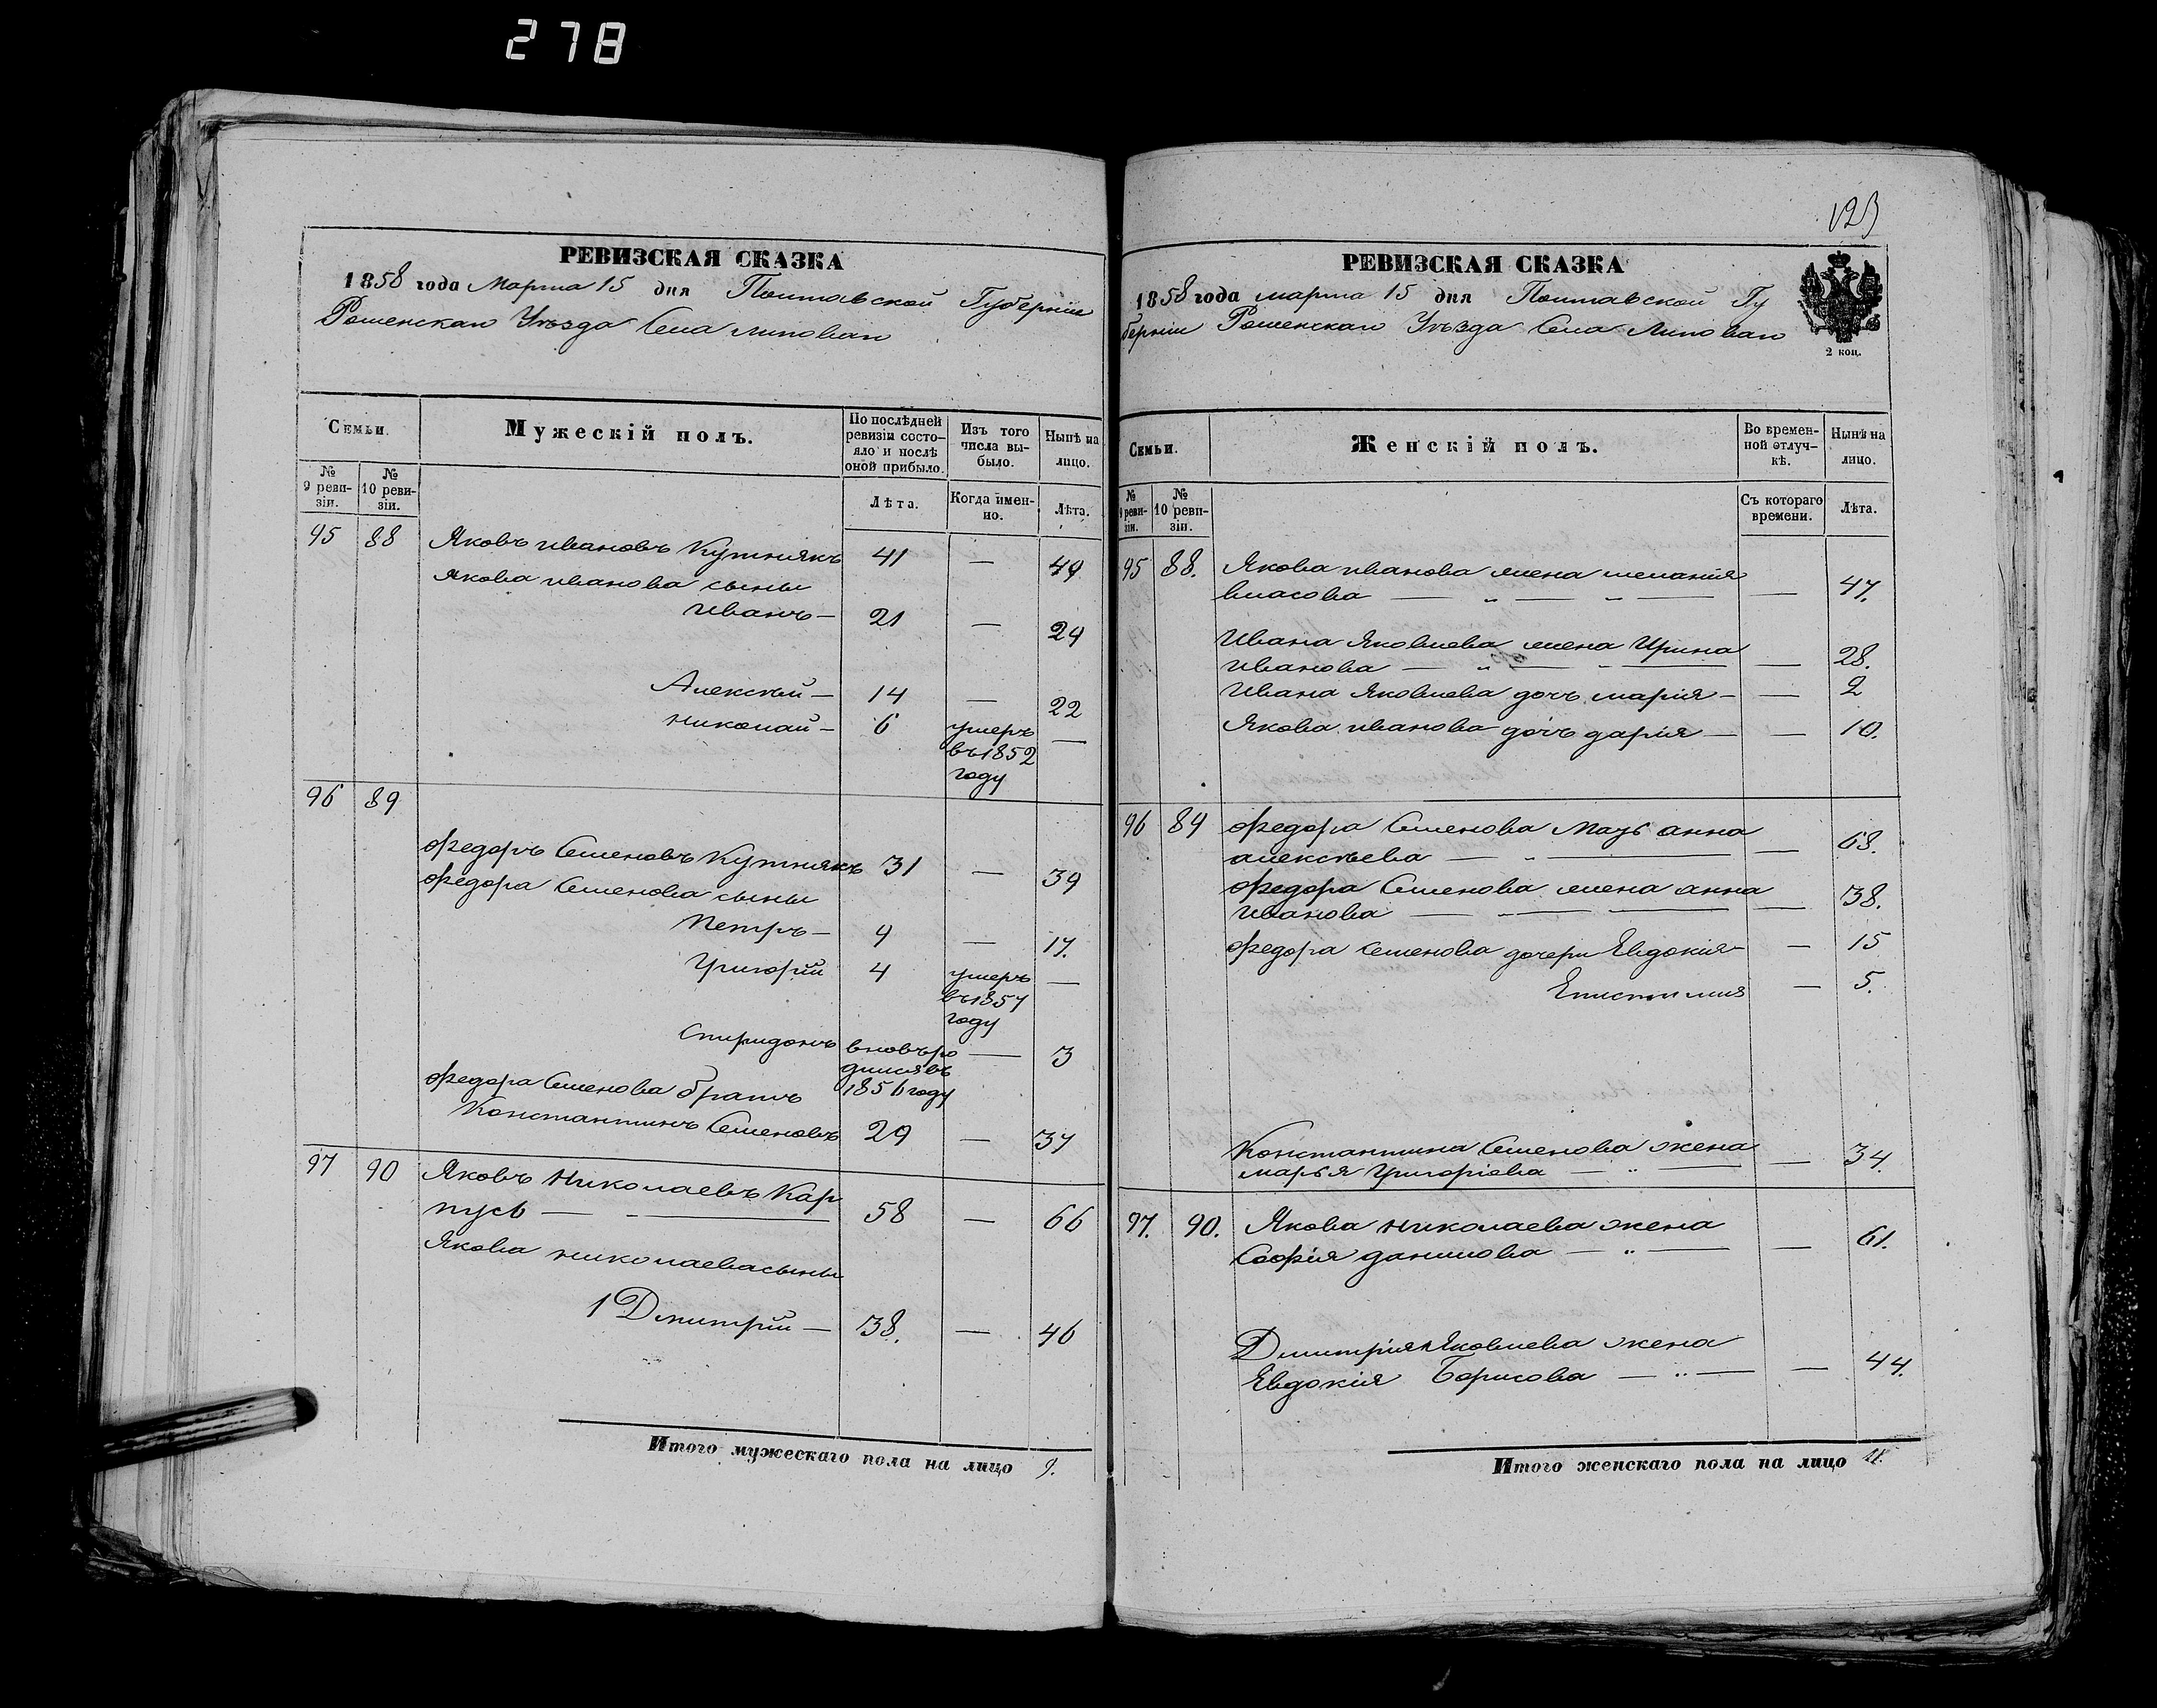 278
РЕВИЗСКАЯ СКАЗКА
1858 года Марта 15 дня Полтавской Губерніи
Роменскаго Уѣзда Села Липоваго
Семьи.
Мужескій полъ.
По послѣдней ревизіи состояло и послѣ оной прибыло.
Изъ того числа выбыло.
Нынѣ на лицо.
№ 9 ревизіи.
№ 10 ревизіи.
Лѣта.
Когда именно.
Лѣта.
95 88 Яковъ Ивановъ Кутнякъ 41 — 49
Якова Иванова сыны
Иванъ — 21 — 29
Алексѣй — 14 — 22
Николай — 6 умеръ —
въ 1852
году
96 89
Федоръ Семеновъ Кутнякъ 31 — 39
Федора Семенова сыны
Петръ — 9 — 17.
Григорій 4 умеръ —
въ 1857
году
Спиридонъ вновь ро — 3
дился въ
Федора Семенова братъ 1856 году
Константинъ Семеновъ 29 — 37
97 90 Яковъ Николаевъ Кар
пусь — 58 — 66
Якова Николаева сыны
1 Дмитрій — 38. — 46
Итого мужескаго пола на лицо 9.
123
РЕВИЗСКАЯ СКАЗКА
1858 года марта 15 дня Полтавской Гу
берніи Роменскаго Уѣзда Села Липоваго
2 коп.
Семьи.
Женскій полъ.
Во временной отлучкѣ.
Нынѣ на лицо.
№ 9 ревизіи.
№ 10 ревизіи.
Съ котораго времени.
Лѣта.
95 88. Якова Иванова жена Меланія
Власова — " — " — — 47.
Ивана Яковлева жена Ирина
Иванова — " — " — — 28.
Ивана Яковлева дочь Марія — — 2
Якова Иванова дочь Дарія — — 10.
96 89 Федора Семенова мать Анна
Алексѣева — " — — 63.
Федора Семенова жена Анна
Иванова — " — — — 38.
Федора Семенова дочери Евдокія — — 15
Епистимия — 5.
Константина Семенова жена
Марья Григоріева — " — — 34.
97. 90. Якова Николаева жена
Софія Данилова — " — — 61.
Дмитрія Яковлева жена
Евдокія Борисова — " — — 44.
Итого женскаго пола на лицо 11.